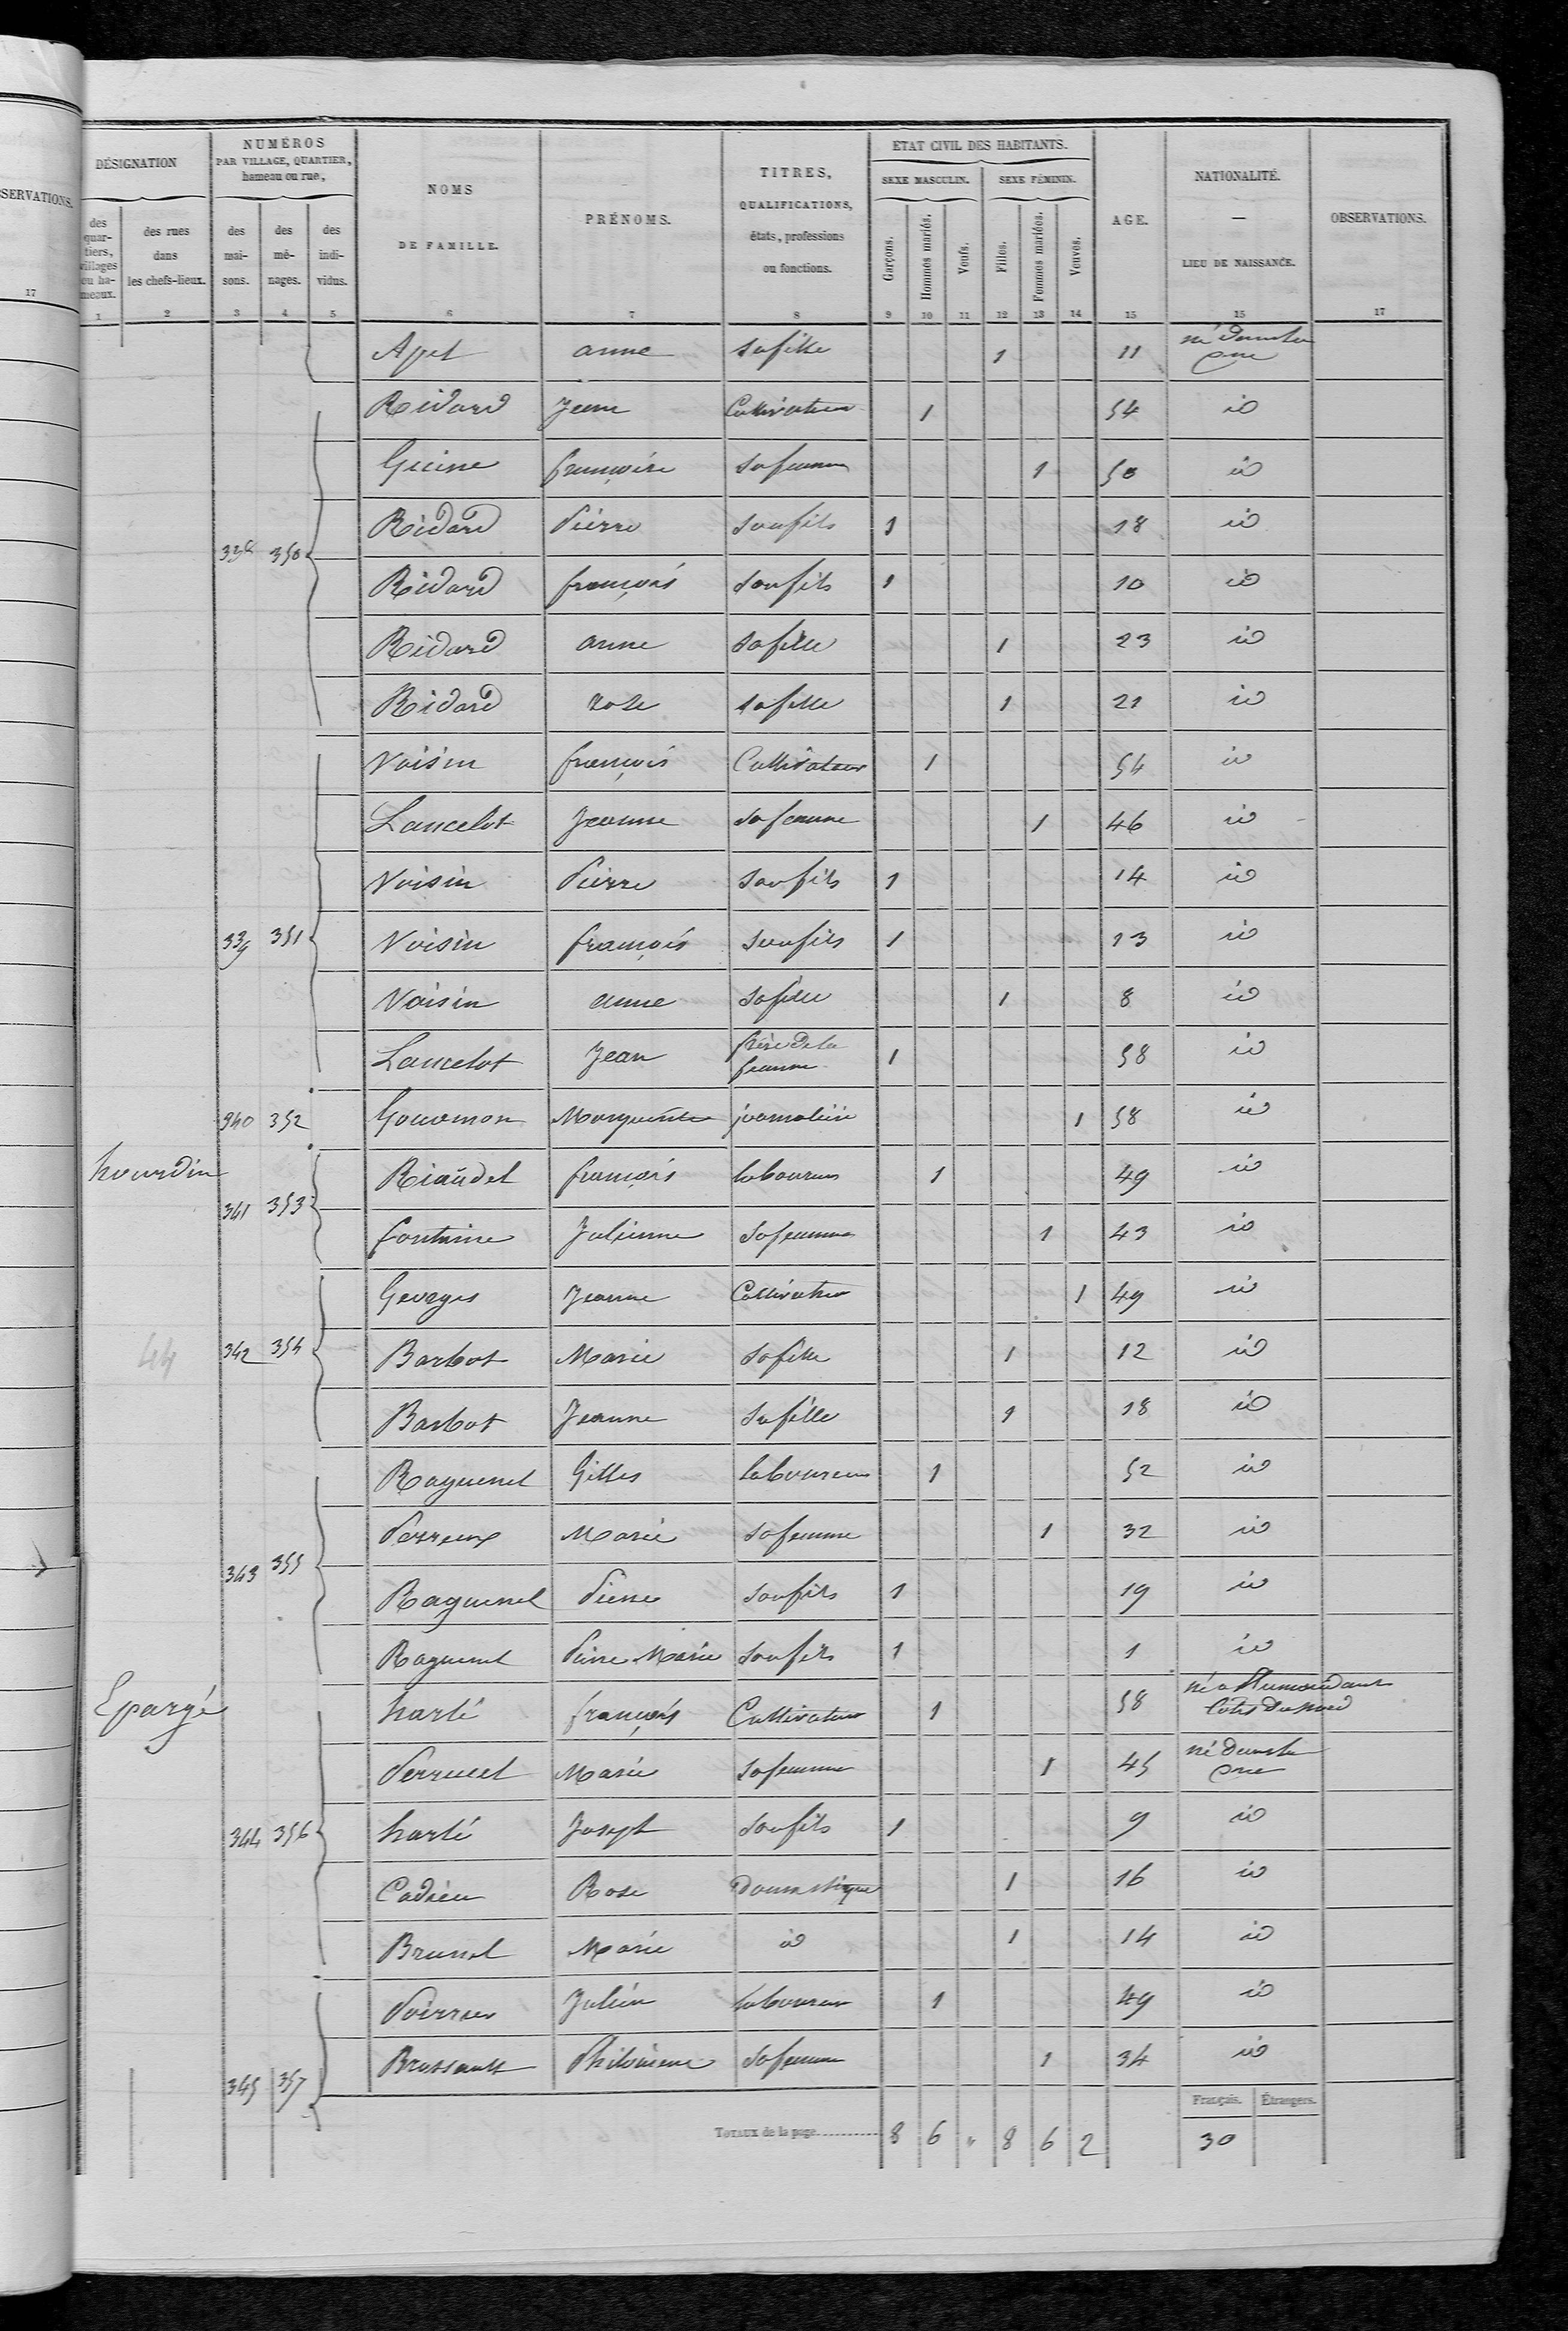 SERVATIONS.
17
DÉSIGNATION
NUMÉROS
PAR VILLAGE, QUARTIER,
hameau ou rue,
NOMS
DE FAMILLE.
PRÉNOMS.
TITRES,
QUALIFICATIONS,
états, professions
ou fonctions.
ÉTAT CIVIL DES HABITANTS.
SEXE MASCULIN. SEXE FÉMININ.
AGE.
NATIONALITÉ.
—
LIEU DE NAISSANCE.
OBSERVATIONS.
des
quar-
tiers,
villages
ou ha-
meaux.
des rues
dans
les chefs-lieux.
des
mai-
sons.
des
mé-
nages.
des
indi-
vidus.
Garçons.
Hommes mariés.
Veufs.
Filles.
Femmes mariées.
Veuves.
1 2 3 4 5 6 7 8 9 10 11 12 13 14 15 15 17
Apel anne sa fille 1 11 né dans la cne
Ridard Jean Cultivateur 1 54 id
Guine françoise sa femme 1 50 id
Ridard Pierre son fils 1 18 id
338 350
Ridard françois son fils 1 10 id
Ridard anne sa fille 1 23 id
Ridard rose sa fille 1 21 id
Voisin françois Cultivateur 1 54 id
Lancelot Jeanne sa femme 1 46 id
Voisin Pierre son fils 1 14 id
339 351 Voisin françois son fils 1 13 id
Voisin anne sa fille 1 8 id
Lancelot Jean frère de la femme 1 58 id
340 352 Marguerite 1 58 id
hourdin Riaudel françois laboureur 1 49 id
341 353
fontaine Julienne sa femme 1 43 id
Jeanne 1 49 id
44 342 354 Barbot Marie sa fille 1 12 id
Barbot Jeanne sa fille 1 18 id
Raguenel Gilles laboureur 1 52 id
Perreux Marie sa femme 1 32 id
343 355
Raguenel Pierre son fils 1 19 id
Raguenel Pierre Marie son fils 1 1 id
Epargé harlé françois Cultivateur 1 58 né a Cotes du nord
Perrucel Marie sa femme 1 45 né dans la cne
344 356 harlé Joseph son fils 1 9 id
Cadieu Rose Domestique 1 16 id
Brunel Marie id 1 14 id
Poirier Julien laboureur 1 49 id
345 357 Brossault Philomene sa femme 1 34 id
Français. Étrangers.
Totaux de la page 8 6 " 8 6 2 30